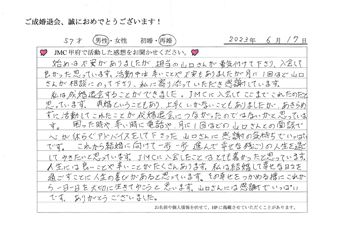 ご成婚退会、誠におめでとうございます！
57才 男性・女性 初婚・再婚 2023年6月17日
JMC甲府で活動した感想をお聞かせください。
始めは不安がありましたが 担当の山口さんが後押付けて下さり、入会して
良かった思っています。活動中は 月に1回ほど山口
さんが相談にのって下さり、私に寄り添っていただき感謝しています。
私は成婚退会することができました。JMCに入会してここまでこれたのだと
思っています。再婚ということもあり、上手くいかないこともありましたが、あきらめ
ずに活動してこれたことが成婚退会につながったのではないかと思っていま
す。困った時や辛い時に電話や月に1回ほどの山口さんとの面談で
心が休らぐアドバイスをして下さった山口さんには感謝の気持ちでいっぱい
です。これから結婚に向けて一歩一歩進んで幸せな残りの人生を過
してやきたいと思っています。JMCに入会したことはとても良かったと思っています。
人生には苦しいことや辛いことがたくさんあります。私は結婚して幸せな日々を
過ごすことに人生の喜びがあると思っています。その幸せをつかめる様にこれか
ら一日一日を大切に生きてやこうと思います。山口さんには感謝でいっぱい
です。ありがとうございました。
お名前や個人情報を伏せて、HPに掲載させていただくことがあります。